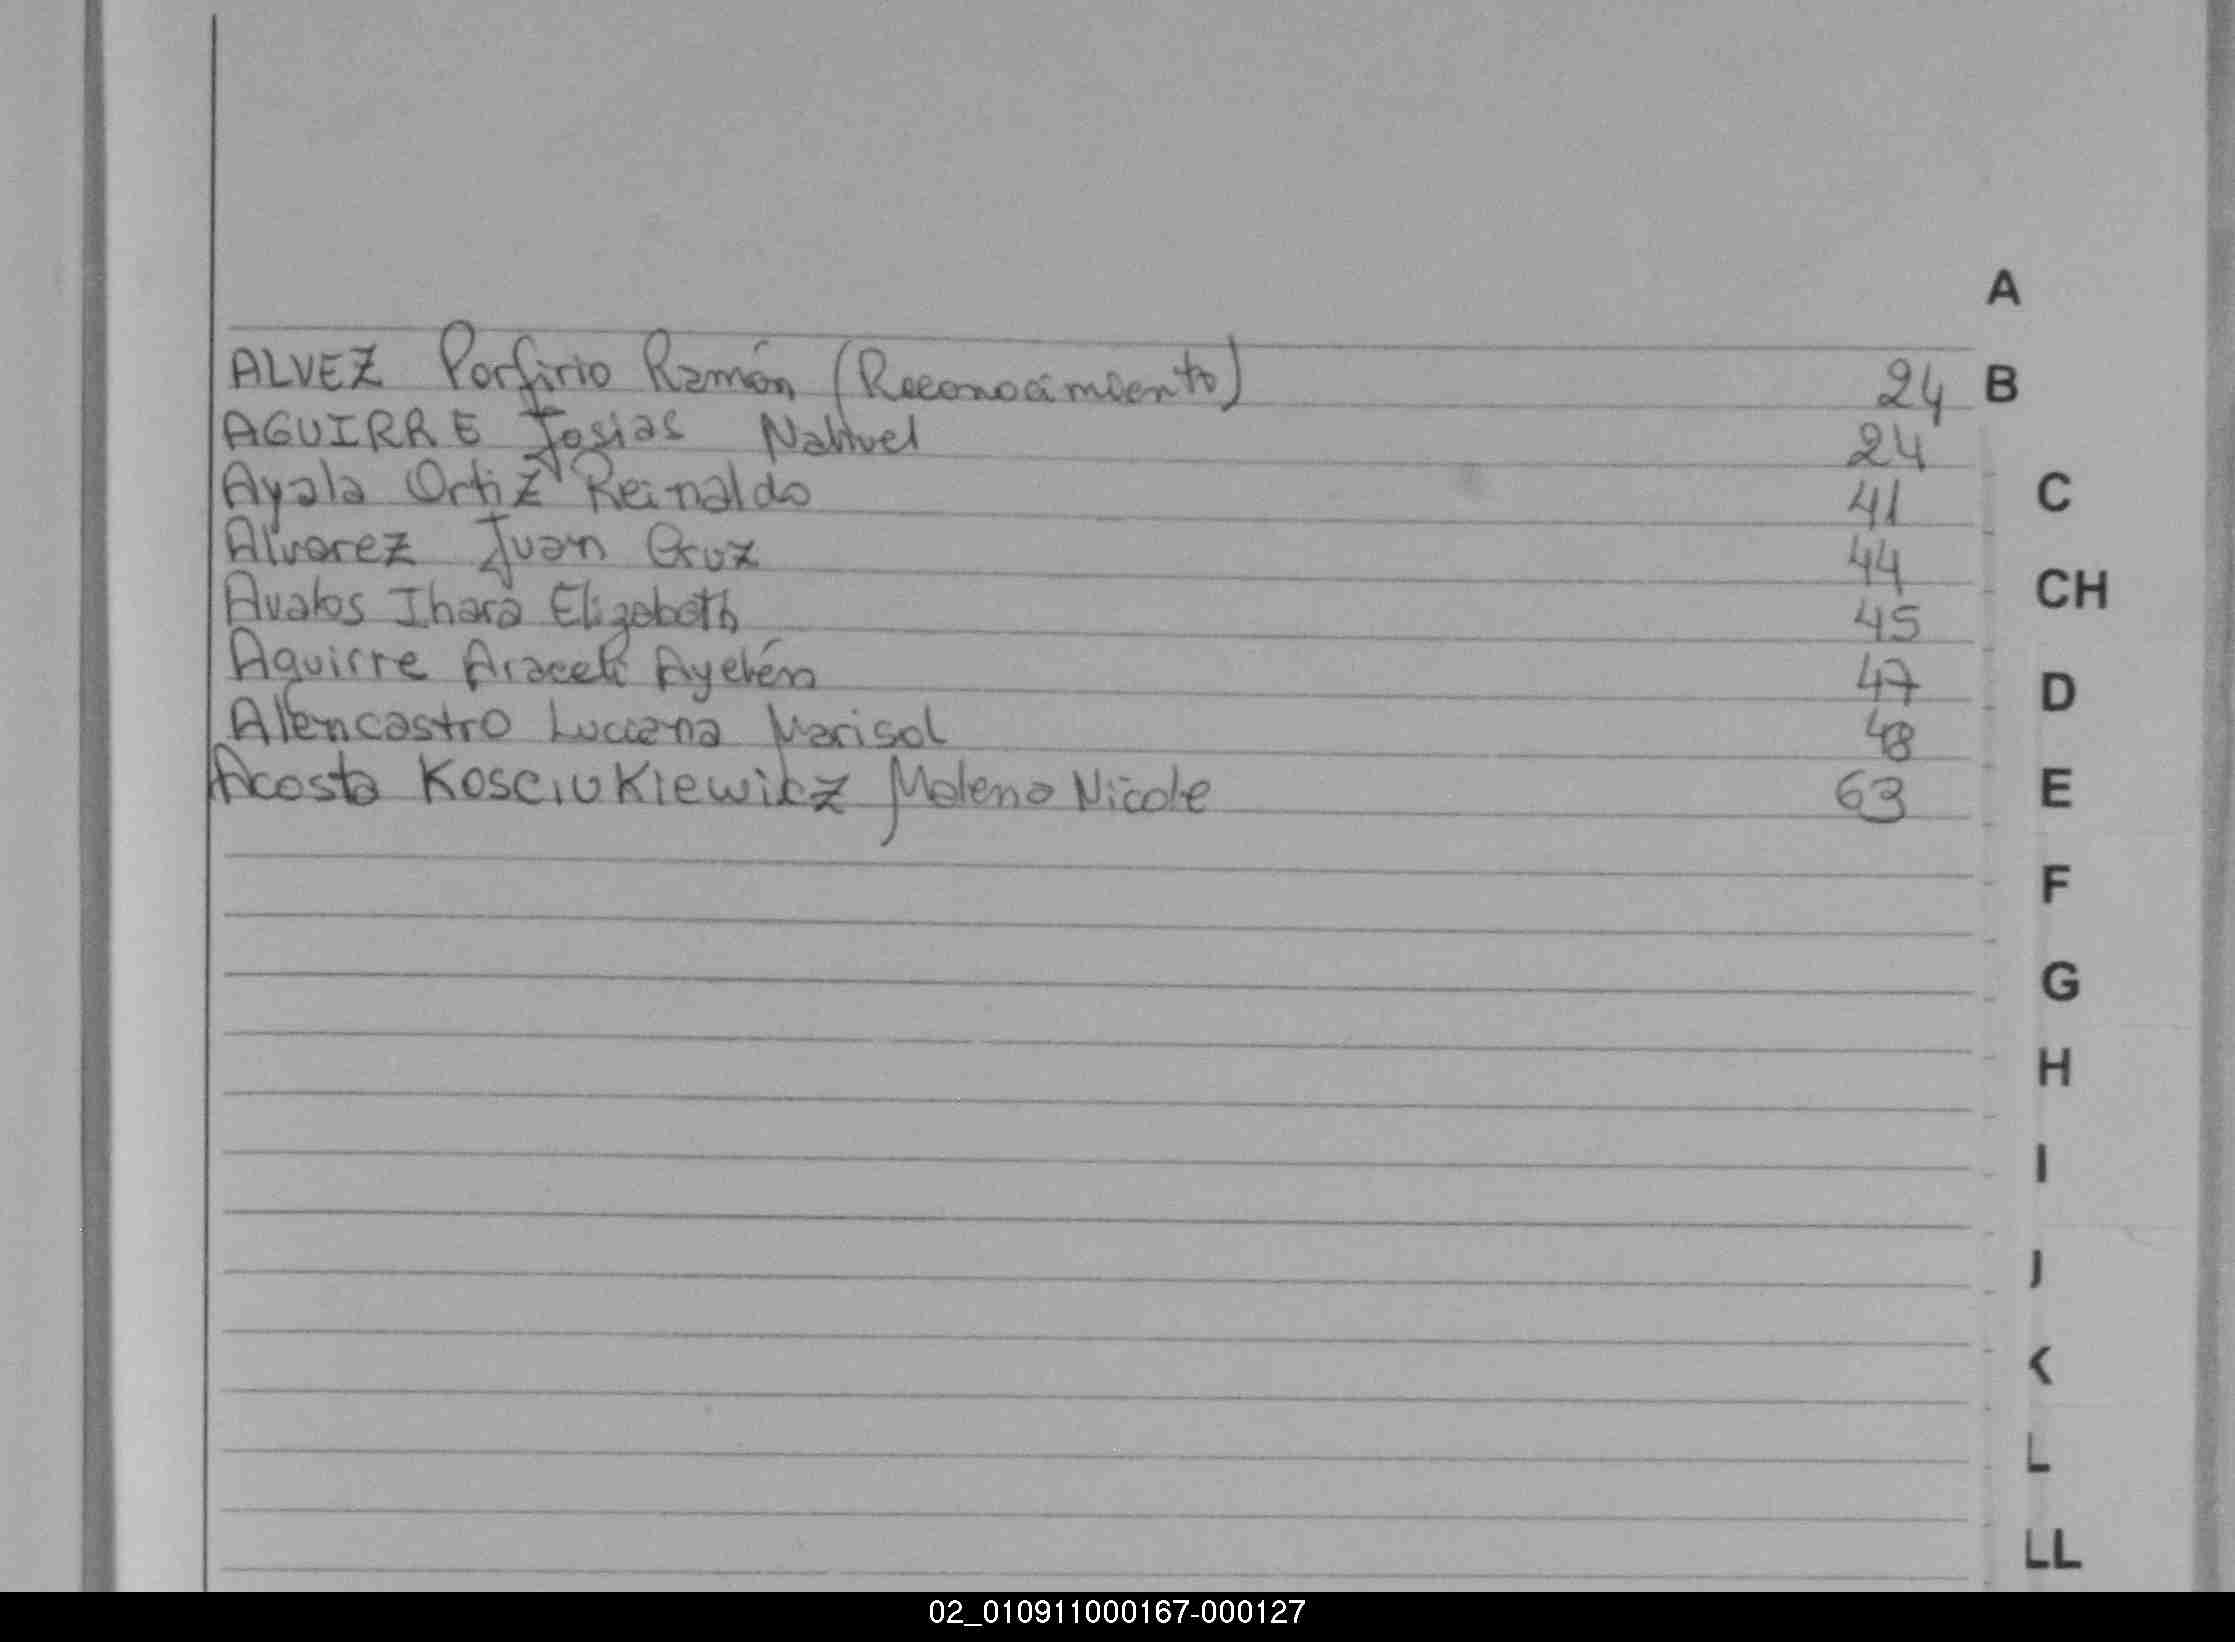 A
ALVEZ Porfirio Ramón (Reconocimiento) 24
B
AGUIRRE Josias Nahuel 24
Ayala Ortiz Reinaldo 41
C
Alvarez Juan Cruz 44
CH
Avalos Ihara Elizabeth 45
Aguirre Araceli Ayelén 47
D
Alencastro Luciana Marisol 48
Acosta Kosciukiewicz Malena Nicole 63
E
F
G
H
I
J
K
L
LL
02_010911000167-000127